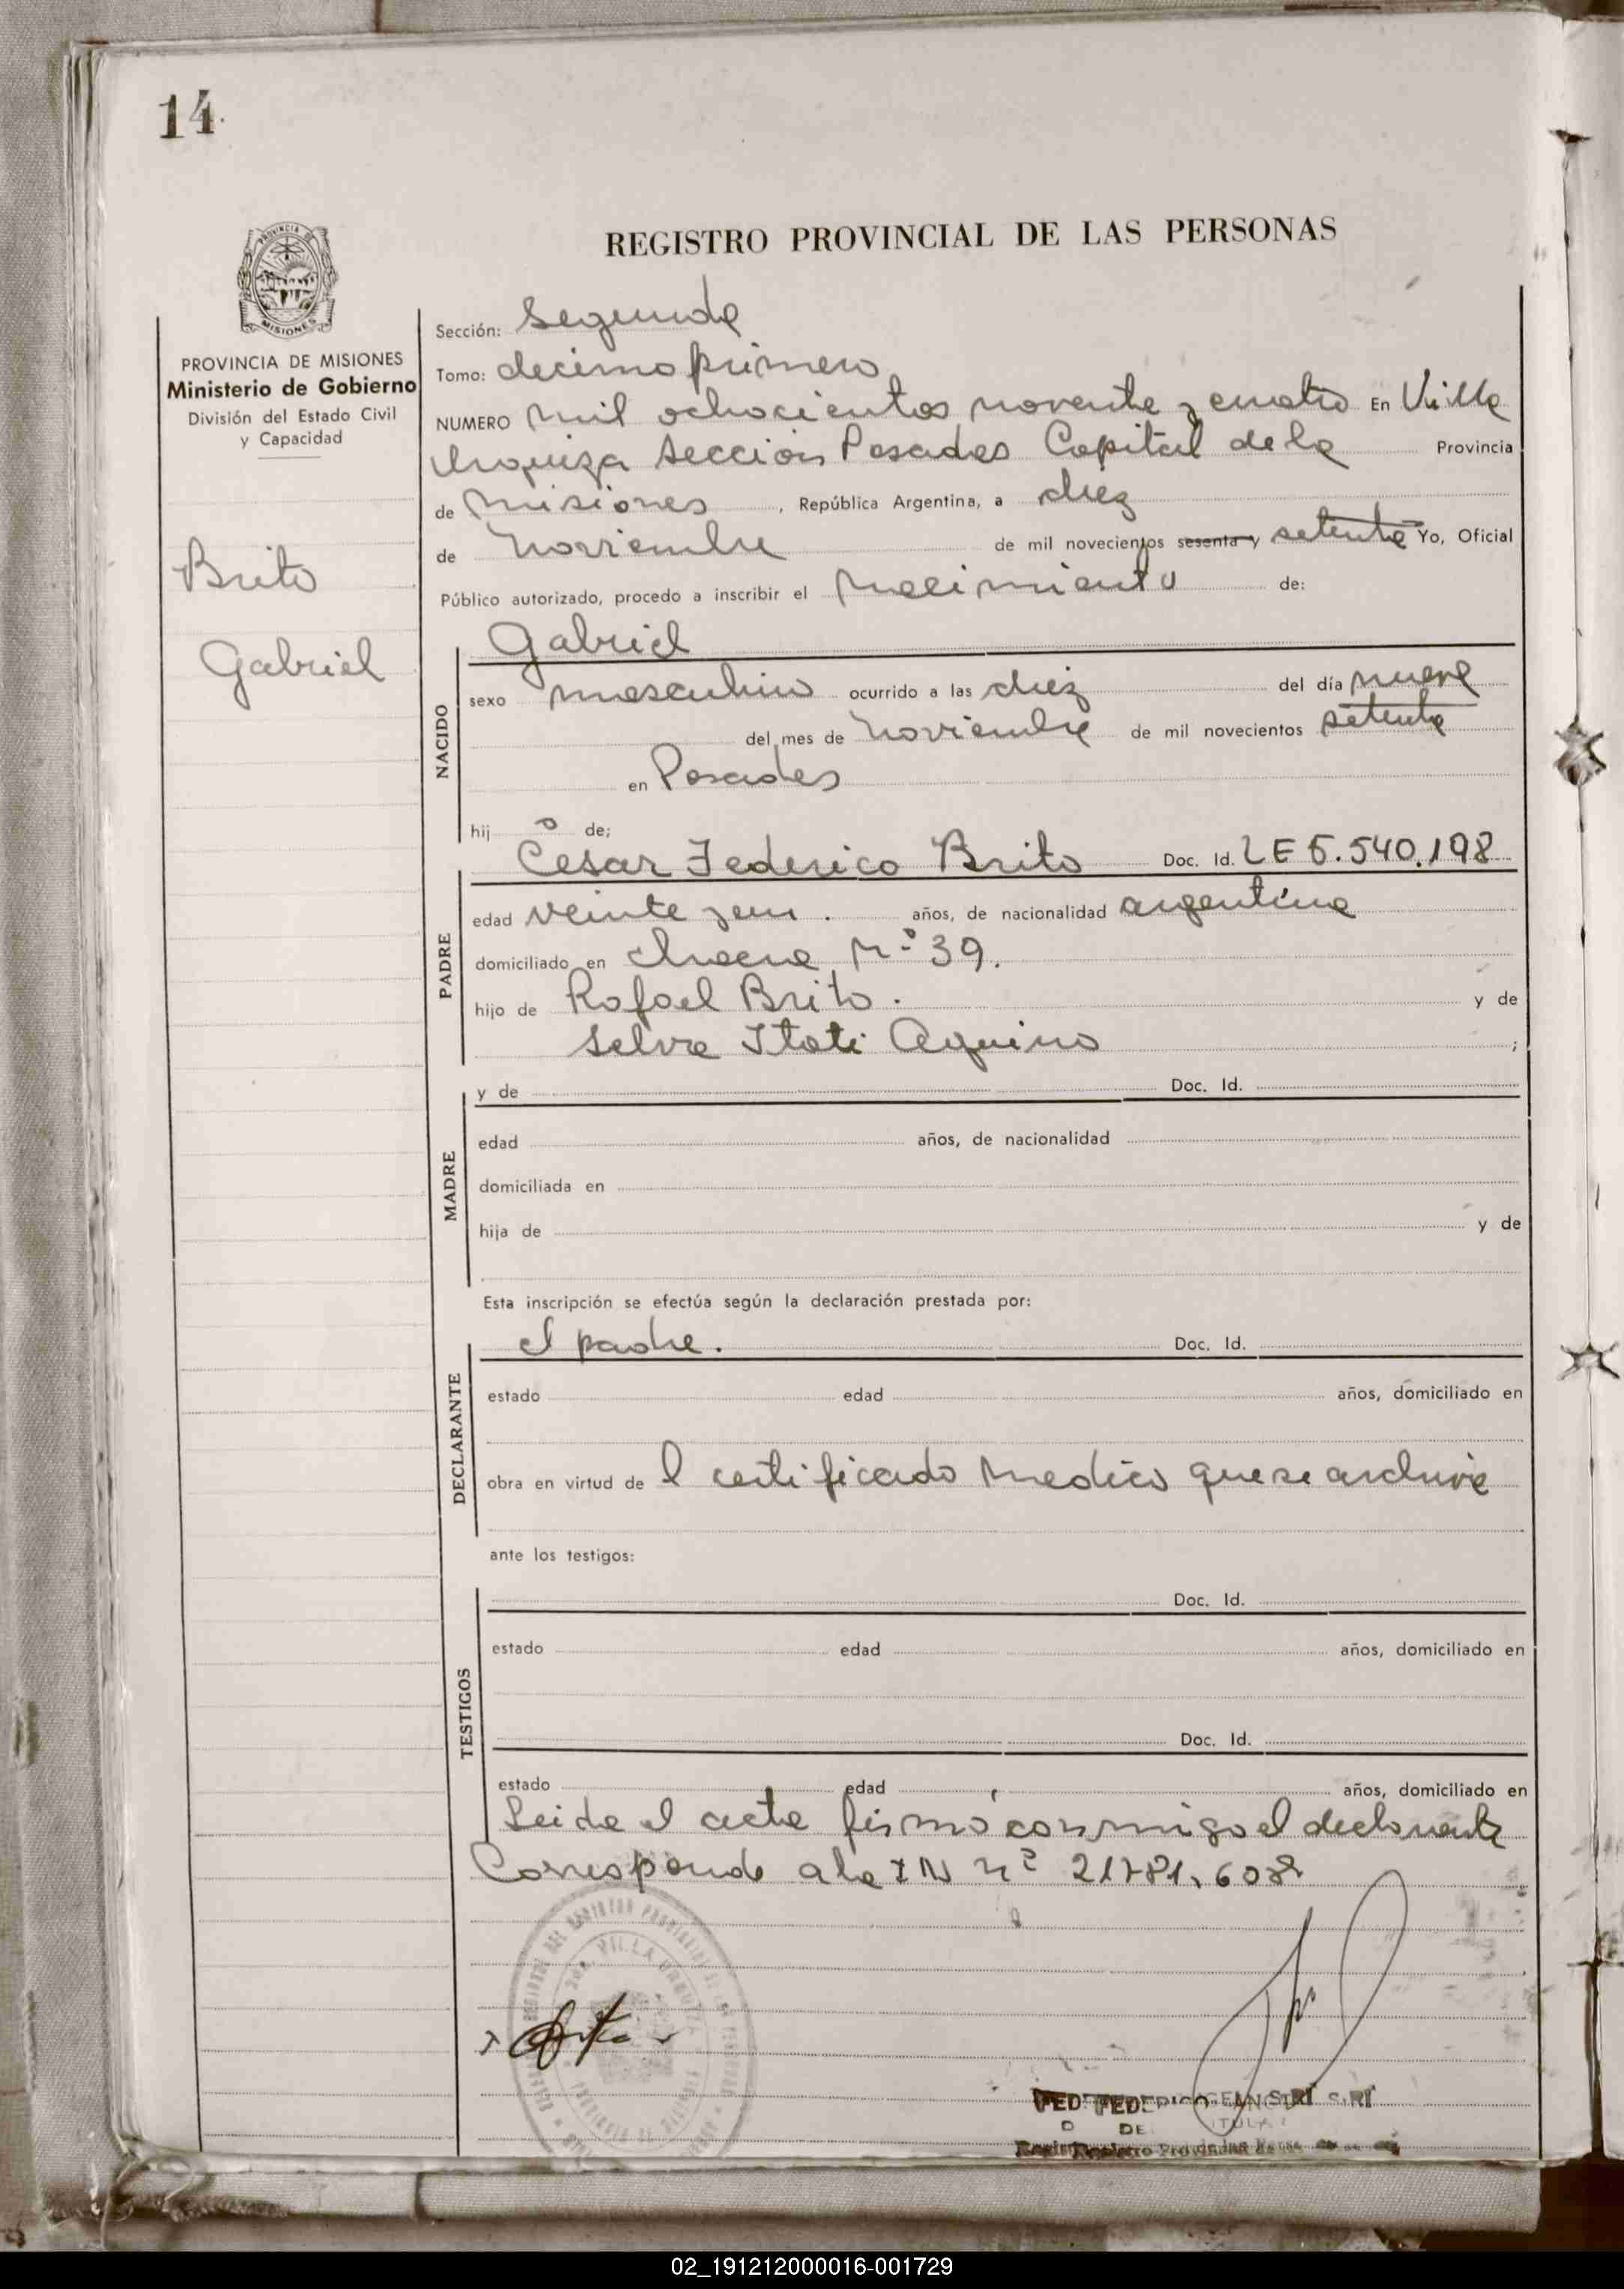 14
REGISTRO PROVINCIAL DE LAS PERSONAS
PROVINCIA DE MISIONES
MISIONES
PROVINCIA DE MISIONES
Ministerio de Gobierno
División del Estado Civil
y Capacidad
Brito
Gabriel
Sección: Segunda
Tomo: decimo primero
NUMERO mil ochocientos noventa y cuatro En Villa
Urquiza Sección Posadas Capital de la Provincia
de Misiones, República Argentina, a diez
de Noviembre de mil novecientos sesenta y setenta Yo, Oficial
Público autorizado, procedo a inscribir el nacimiento de:
NACIDO
Gabriel
sexo masculino ocurrido a las diez del día nueve
del mes de Noviembre de mil novecientos setenta
en Posadas
hij o de;
PADRE
Cesar Federico Brito Doc. Id. LE 5.540.198
edad veinte y un. años, de nacionalidad argentina
domiciliado en Chacra Nº 39.
hijo de Rafael Brito. y de
Selva Itati Aquino ;
MADRE
y de Doc. Id.
edad años, de nacionalidad
domiciliada en
hija de y de
Esta inscripción se efectúa según la declaración prestada por:
DECLARANTE
el padre. Doc. Id.
estado edad años, domiciliado en
obra en virtud de l certificado medico que se archiva
ante los testigos:
TESTIGOS
Doc. Id.
estado edad años, domiciliado en
Doc. Id.
estado edad años, domiciliado en
Leida el acta firmó conmigo el declarante
Corresponde a la IN nº 21781.608
VILLA URQUIZA
FEDERICO GEAN SIRI
Registro Provincial
02_191212000016-001729